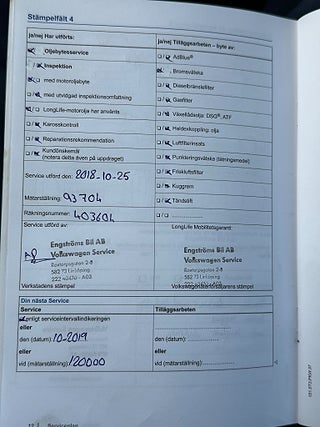 Stämpelfält 4
ja/nej Har utförts:
Oljebytesservice
Inspektion
med motoroljebyte
med utvidgad inspektionsomfattning
LongLife-motorolja har använts
Karosskontroll
Reparationsrekommendation
Kundönskemål
(notera detta även på uppdraget)
Service utförd den: 2018-10-25
Mätarställning: 93704
Räkningsnummer: 403604
Service utförd av:
Engströms Bil AB
Volkswagen Service
582 73 Linköping
Verkstadens stämpel
ja/nej Tilläggsarbeten – byte av:
AdBlue®
Bromsvätska
Dieselbränslefilter
Gasfilter
Växellådsolja: DSG®, ATF
Haldexkoppling: olja
Luftfilterinsats
Punkteringsvätska (tätningsmedel)
Friskluftsfilter
Kuggrem
Tändstift
LongLife Mobilitetsgaranti:
Engströms Bil AB
Volkswagen Service
582 73 Linköping
Volkswagenåterförsäljarens stämpel
Din nästa Service
Service
enligt serviceintervallindikeringen
eller
den (datum): 10-2019
eller
vid (mätarställning): 120000
Tilläggsarbeten:
eller
den (datum):
eller
vid (mätarställning):
Serviceplan